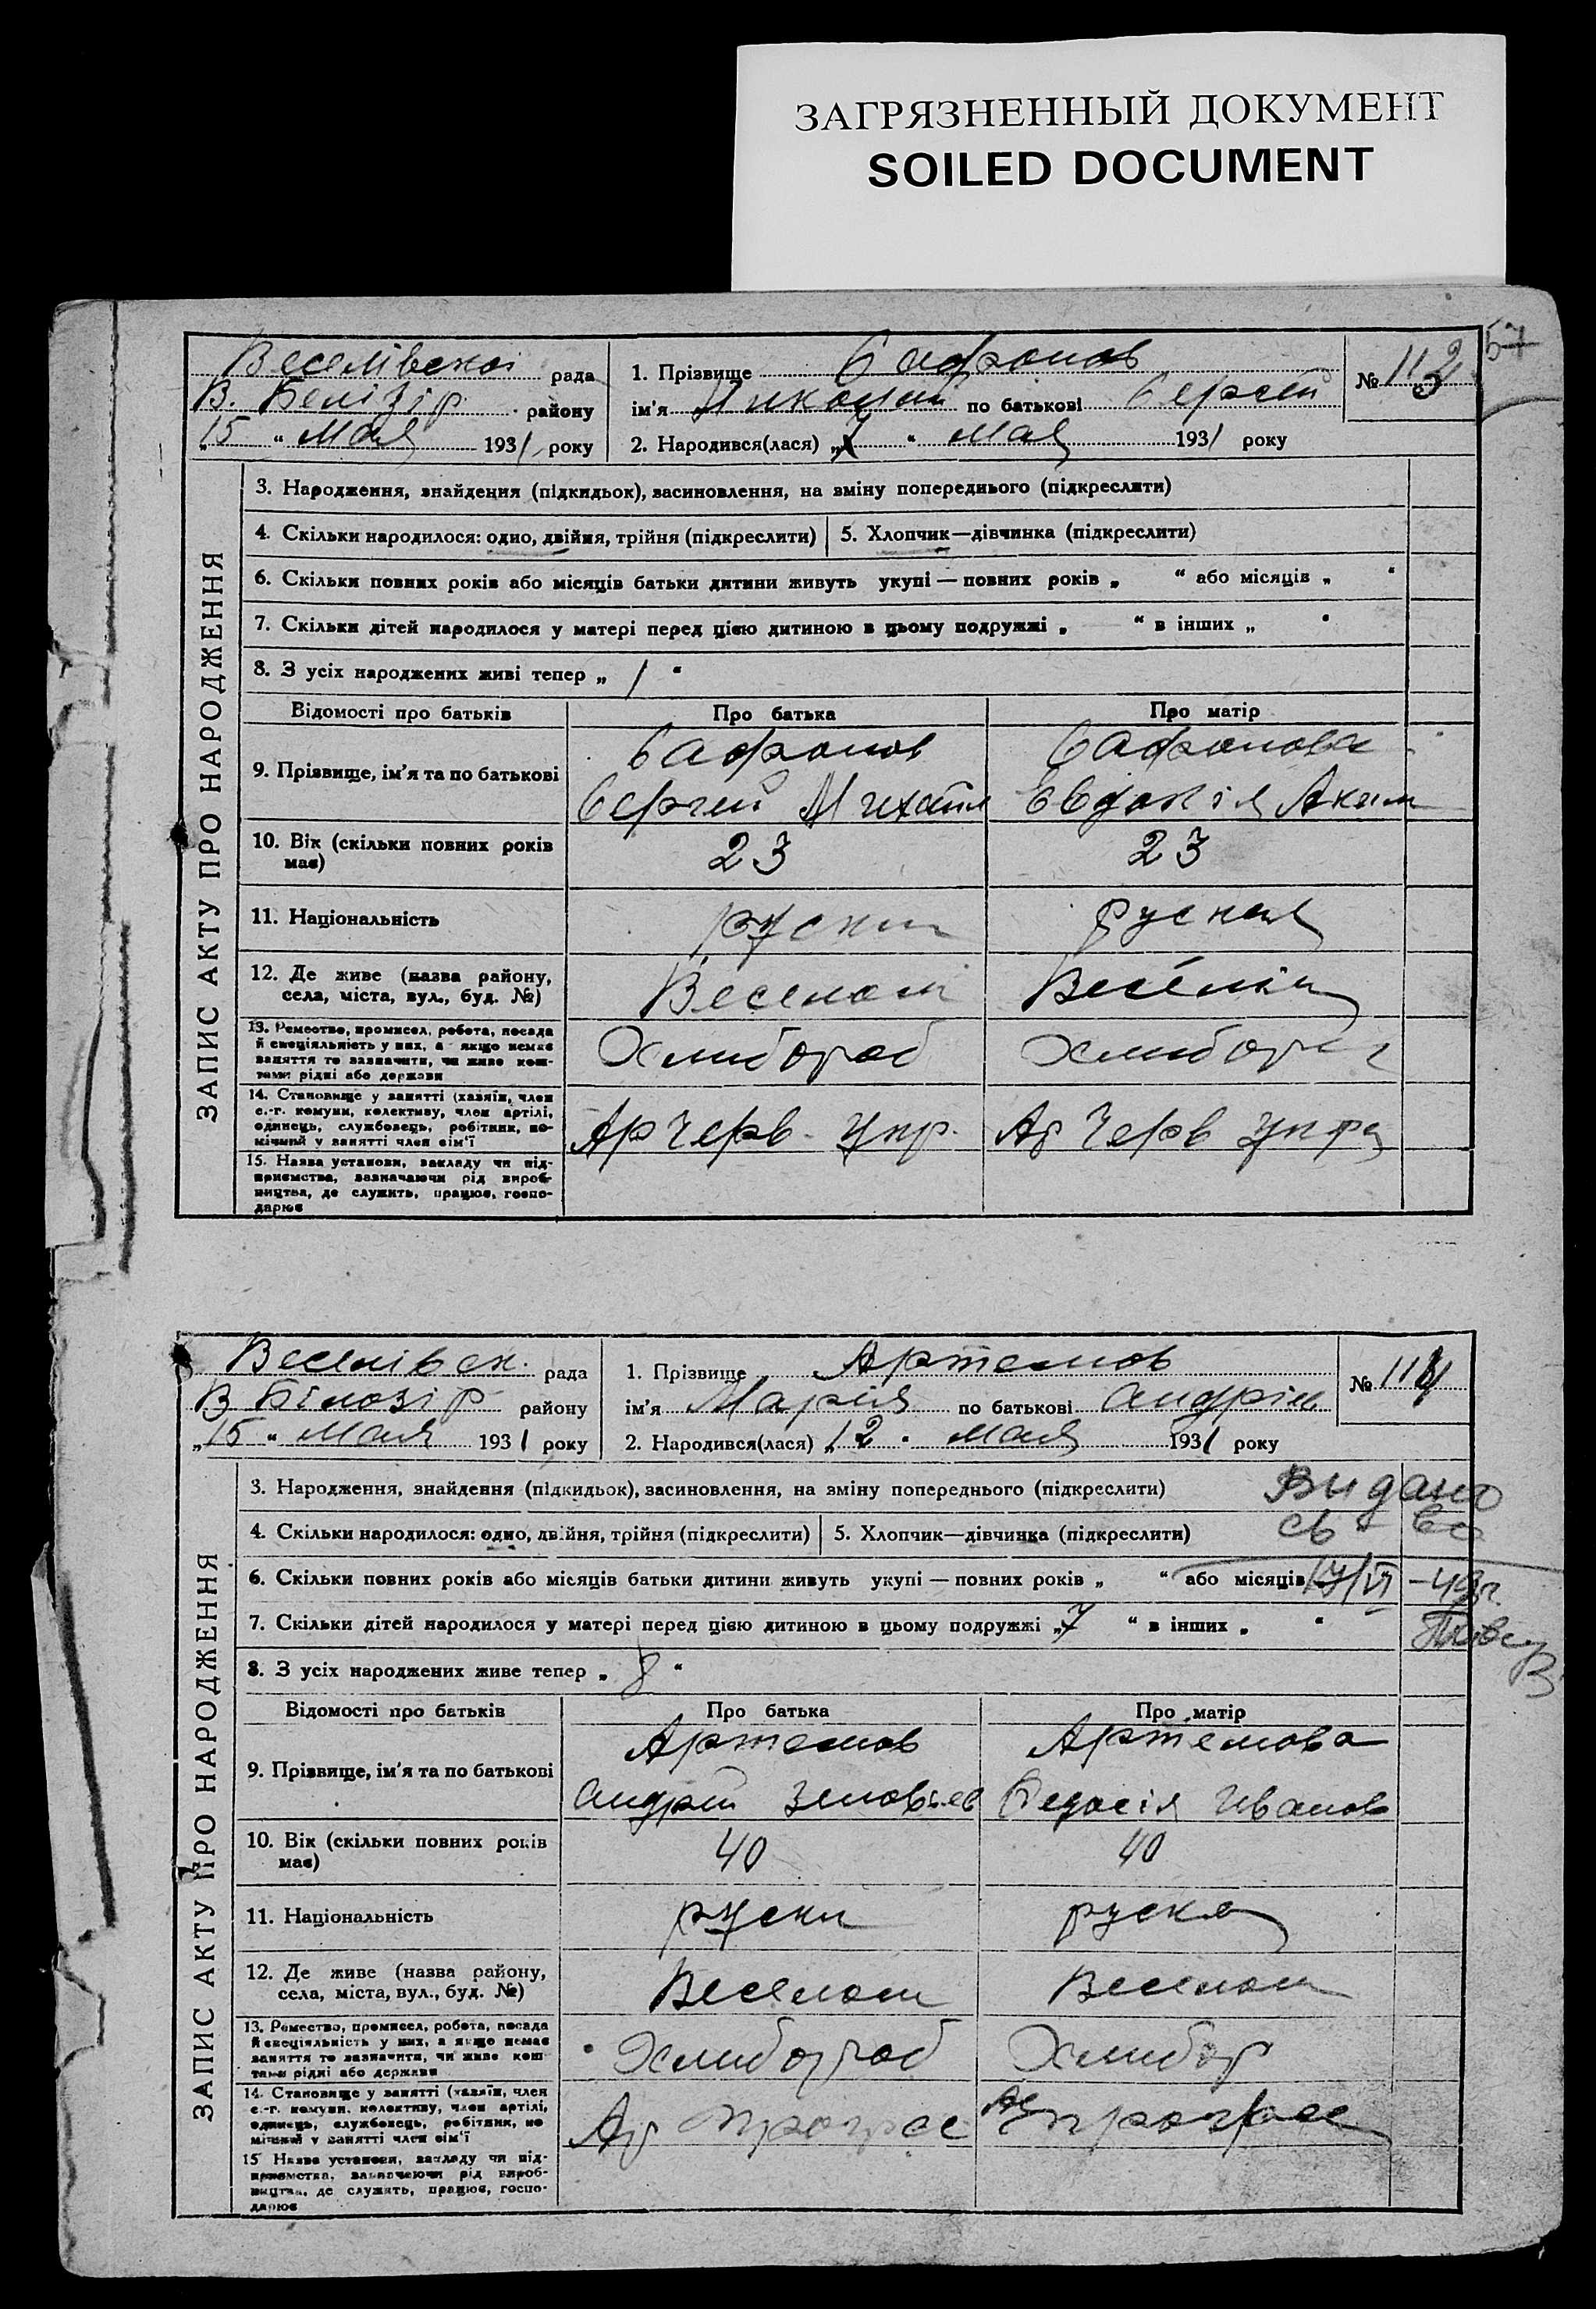 ЗАГРЯЗНЕННЫЙ ДОКУМЕНТ
SOILED DOCUMENT
57
Веселівскої рада
В. Белізір. району
„15 “ Мая 1931 року
1. Прізвище Сафронов
ім'я Николай по батькові Сергей
2. Народився(лася) „7 “ мая 1931 року
№ 113
ЗАПИС АКТУ ПРО НАРОДЖЕННЯ
3. Народження, знайдення (підкидьок), засиновлення, на зміну попереднього (підкреслити)
4. Скільки народилося: одно, двійня, трійня (підкреслити) 5. Хлопчик—дівчинка (підкреслити)
6. Скільки повних років або місяців батьки дитини живуть укупі — повних років „ “ або місяців „ “
7. Скільки дітей народилося у матері перед цією дитиною в цьому подружжі „ “ в інших „ “
8. З усіх народжених живі тепер „ 1 “
Відомості про батьків Про батька Про матір
9. Прізвище, ім'я та по батькові
Сафронов
Сергей Михайл
Сафронова
Евдокія Аким
10. Вік (скільки повних років має) 23 23
11. Національність руский руская
12. Де живе (назва району,
села, міста, вул., буд. №)
Веселой
13. Ремество, промисел, робота, посада
й спеціяльність у них, а якщо немає
заняття то зазначити, чи живе кош-
тами рідні або держави
Хлибороб
14. Становище у занятті (хазяїн, член
с.-г. комуни, колективу, член артілі,
одинець, службовець, робітник, по-
мічний у занятті член сім'ї
Ар Черв. Укр. Ар Черв Укра
15. Назва установи, закладу чи під-
приємства, зазначаючи рід вироб-
ництва, де служить, працює, госпо-
дарює
Веселівск. рада
В Білозір району
„15 “ Мая 1931 року
1. Прізвище Артемов
ім'я Марія по батькові Андрій
2. Народився(лася) „12 “ мая 1931 року
№ 114
ЗАПИС АКТУ ПРО НАРОДЖЕННЯ
3. Народження, знайдення (підкидьок), засиновлення, на зміну попереднього (підкреслити)
Видано
4. Скільки народилося: одно, двійня, трійня (підкреслити) 5. Хлопчик—дівчинка (підкреслити)
св - во
6. Скільки повних років або місяців батьки дитини живуть укупі — повних років „ “ або місяців
7. Скільки дітей народилося у матері перед цією дитиною в цьому подружжі „7 “ в інших „ “
8. З усіх народжених живе тепер „ 8 “
Відомості про батьків Про батька Про матір
9. Прізвище, ім'я та по батькові
Артемов
Андрей Зеновьев
Артемова
Федосія Иванов
10. Вік (скільки повних років має) 40 40
11. Національність руски руска
12. Де живе (назва району,
села, міста, вул., буд. №)
Веселой Веселой
13. Ремество, промисел, робота, посада
й спеціяльність у них, а якщо немає
заняття то зазначити, чи живе кош-
тами рідні або держави
Хлибороб Хлибор
14. Становище у занятті (хазяїн, член
с.-г. комуни, колективу, член артілі,
одинець, службовець, робітник, по-
мічний у занятті член сім'ї
Ар Прогрес Ар прогрес
15 Назва установи, закладу чи під-
приємства, зазначаючи рід вироб-
ництва, де служить, працює, госпо-
дарює